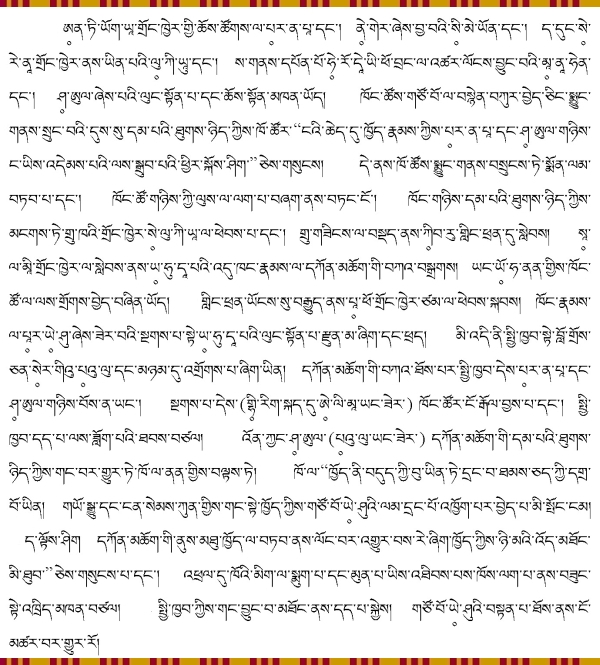 ཨན་ཏི་ཡོག་ཡཱ་གྲོང་ཁྱེར་གྱི་ཆོས་ཚོགས་ལ་པར་ན་པཱ་དང་། ནེ་གེར་ཞེས་བྱ་བའི་སི་མེ་ཡོན་དང་། ད་དུང་སེ་
རེ་ནཱ་གྲོང་ཁྱེར་ནས་ཡིན་པའི་ལུ་ཀི་ཡཱུ་དང་། ས་གནས་དཔོན་པོ་ཧེ་རོ་དེ་ཡི་ཕོ་བྲང་ལ་འཚར་ལོངས་བྱུང་བའི་མཱ་ནཱ་ཧེན་
དང་། ཤཱ་ཨུལ་ཞེས་པའི་ལུང་སྟོན་པ་དང་ཆོས་སྟོན་མཁན་ཡོད། ཁོང་ཚོས་གཙོ་བོ་ལ་བསྙེན་བཀུར་བྱེད་ཅིང་སྨྱུང་
གནས་སྲུང་བའི་དུས་སུ་དམ་པའི་ཐུགས་ཉིད་ཀྱིས་ཁོ་ཚོར་“ངའི་ཆེད་དུ་ཁྱོད་རྣམས་ཀྱིས་པར་ན་པཱ་དང་ཤཱ་ཨུལ་གཉིས་
ང་ཡིས་འདེམས་པའི་ལས་སྒྲུབ་པའི་ཕྱིར་སྐོས་ཤིག་”ཅེས་གསུངས། དེ་ནས་ཁོ་ཚོས་སྨྱུང་གནས་བསྲུངས་ཏེ་སྨོན་ལམ་
བཏབ་པ་དང་། ཁོང་ཚོ་གཉིས་ཀྱི་ལུས་ལ་ལག་པ་བཞག་ནས་བཏང་ངོ་། ཁོང་གཉིས་དམ་པའི་ཐུགས་ཉིད་ཀྱིས་
མངགས་ཏེ་གྲུ་ཁའི་གྲོང་ཁྱེར་སེ་ལུ་ཀི་ཡཱ་ལ་ཕེབས་པ་དང་། གྲུ་གཟིངས་ལ་བསྡད་ནས་ཀིབ་རུ་གླིང་ཕྲན་དུ་སླེབས། སཱ་
ལ་མཱི་གྲོང་ཁྱེར་ལ་སླེབས་ནས་ཡ་ཧུ་དཱ་པའི་འདུ་ཁང་རྣམས་ལ་དཀོན་མཆོག་གི་བཀའ་བསྒྲགས། ཡང་ཡོ་ཧ་ནན་གྱིས་ཁོང་
ཚོ་ལ་ལས་གྲོགས་བྱེད་བཞིན་ཡོད། གླིང་ཕྲན་ཡོངས་སུ་བརྒྱུད་ནས་པཱ་ཕོ་གྲོང་ཁྱེར་ཙམ་ལ་ཕེབས་སྐབས། ཁོང་རྣམས་
ལ་པཱར་ཡེ་ཤུ་ཞེས་ཟེར་བའི་སྔགས་པ་སྟེ་ཡ་ཧུ་དཱ་པའི་ལུང་སྟོན་པ་རྫུན་མ་ཞིག་དང་ཕྲད། མི་འདི་ནི་སྤྱི་ཁྱབ་སྟེ་བློ་གྲོས་
ཅན་སེར་གིའུ་པའུ་ལུ་དང་མཉམ་དུ་འགྲོགས་པ་ཞིག་ཡིན། དཀོན་མཆོག་གི་བཀའ་ཐོས་པར་སྤྱི་ཁྱབ་དེས་པར་ན་པཱ་དང་
ཤཱ་ཨུལ་གཉིས་བོས་ན་ཡང་། སྔགས་པ་དེས་(གྷི་རིག་སྐད་དུ་ཨེ་ལི་མཱ་ཡང་ཟེར་) ཁོང་ཚོར་ངོ་རྒོལ་བྱས་པ་དང་། སྤྱི་
ཁྱབ་དད་པ་ལས་ཟློག་པའི་ཐབས་བཙལ། འོན་ཀྱང་ཤཱ་ཨུལ་(པའུ་ལུ་ཡང་ཟེར་) དཀོན་མཆོག་གི་དམ་པའི་ཐུགས་
ཉིད་ཀྱིས་གང་བར་གྱུར་ཏེ་ཁོ་ལ་ནན་གྱིས་བལྟས་ཏེ། ཁོ་ལ་“ཁྱོད་ནི་བདུད་ཀྱི་བུ་ཡིན་ཏེ་དྲང་བ་ཐམས་ཅད་ཀྱི་དགྲ་
བོ་ཡིན། གཡོ་སྒྱུ་དང་ངན་སེམས་ཀུན་གྱིས་གང་སྟེ་ཁྱོད་ཀྱིས་གཙོ་བོ་ཡེ་ཤུའི་ལམ་དྲང་པོ་འཁྱོག་པར་བྱེད་པ་མི་སྤོང་ངམ།
ད་ལྟོས་ཤིག དཀོན་མཆོག་གི་ནུས་མཐུ་ཁྱོད་ལ་བཏབ་ནས་ལོང་བར་འགྱུར་བས་རེ་ཞིག་ཁྱོད་ཀྱིས་ཉི་མའི་འོད་མཐོང་
མི་ཐུབ་”ཅེས་གསུངས་པ་དང་། འཕྲལ་དུ་ཁོའི་མིག་ལ་སྨུག་པ་དང་མུན་པ་ཡིས་འཐིབས་པས་ཁོས་ལག་པ་ནས་བཟུང་
སྟེ་འཁྲིད་མཁན་བཙལ། སྤྱི་ཁྱབ་ཀྱིས་གང་བྱུང་བ་མཐོང་ནས་དད་པ་སྐྱེས། གཙོ་བོ་ཡེ་ཤུའི་བསྟན་པ་ཐོས་ནས་ངོ་
མཚར་བར་གྱུར་རོ།